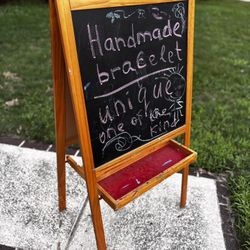 Handmade
bracelet
unique
one of the
kind